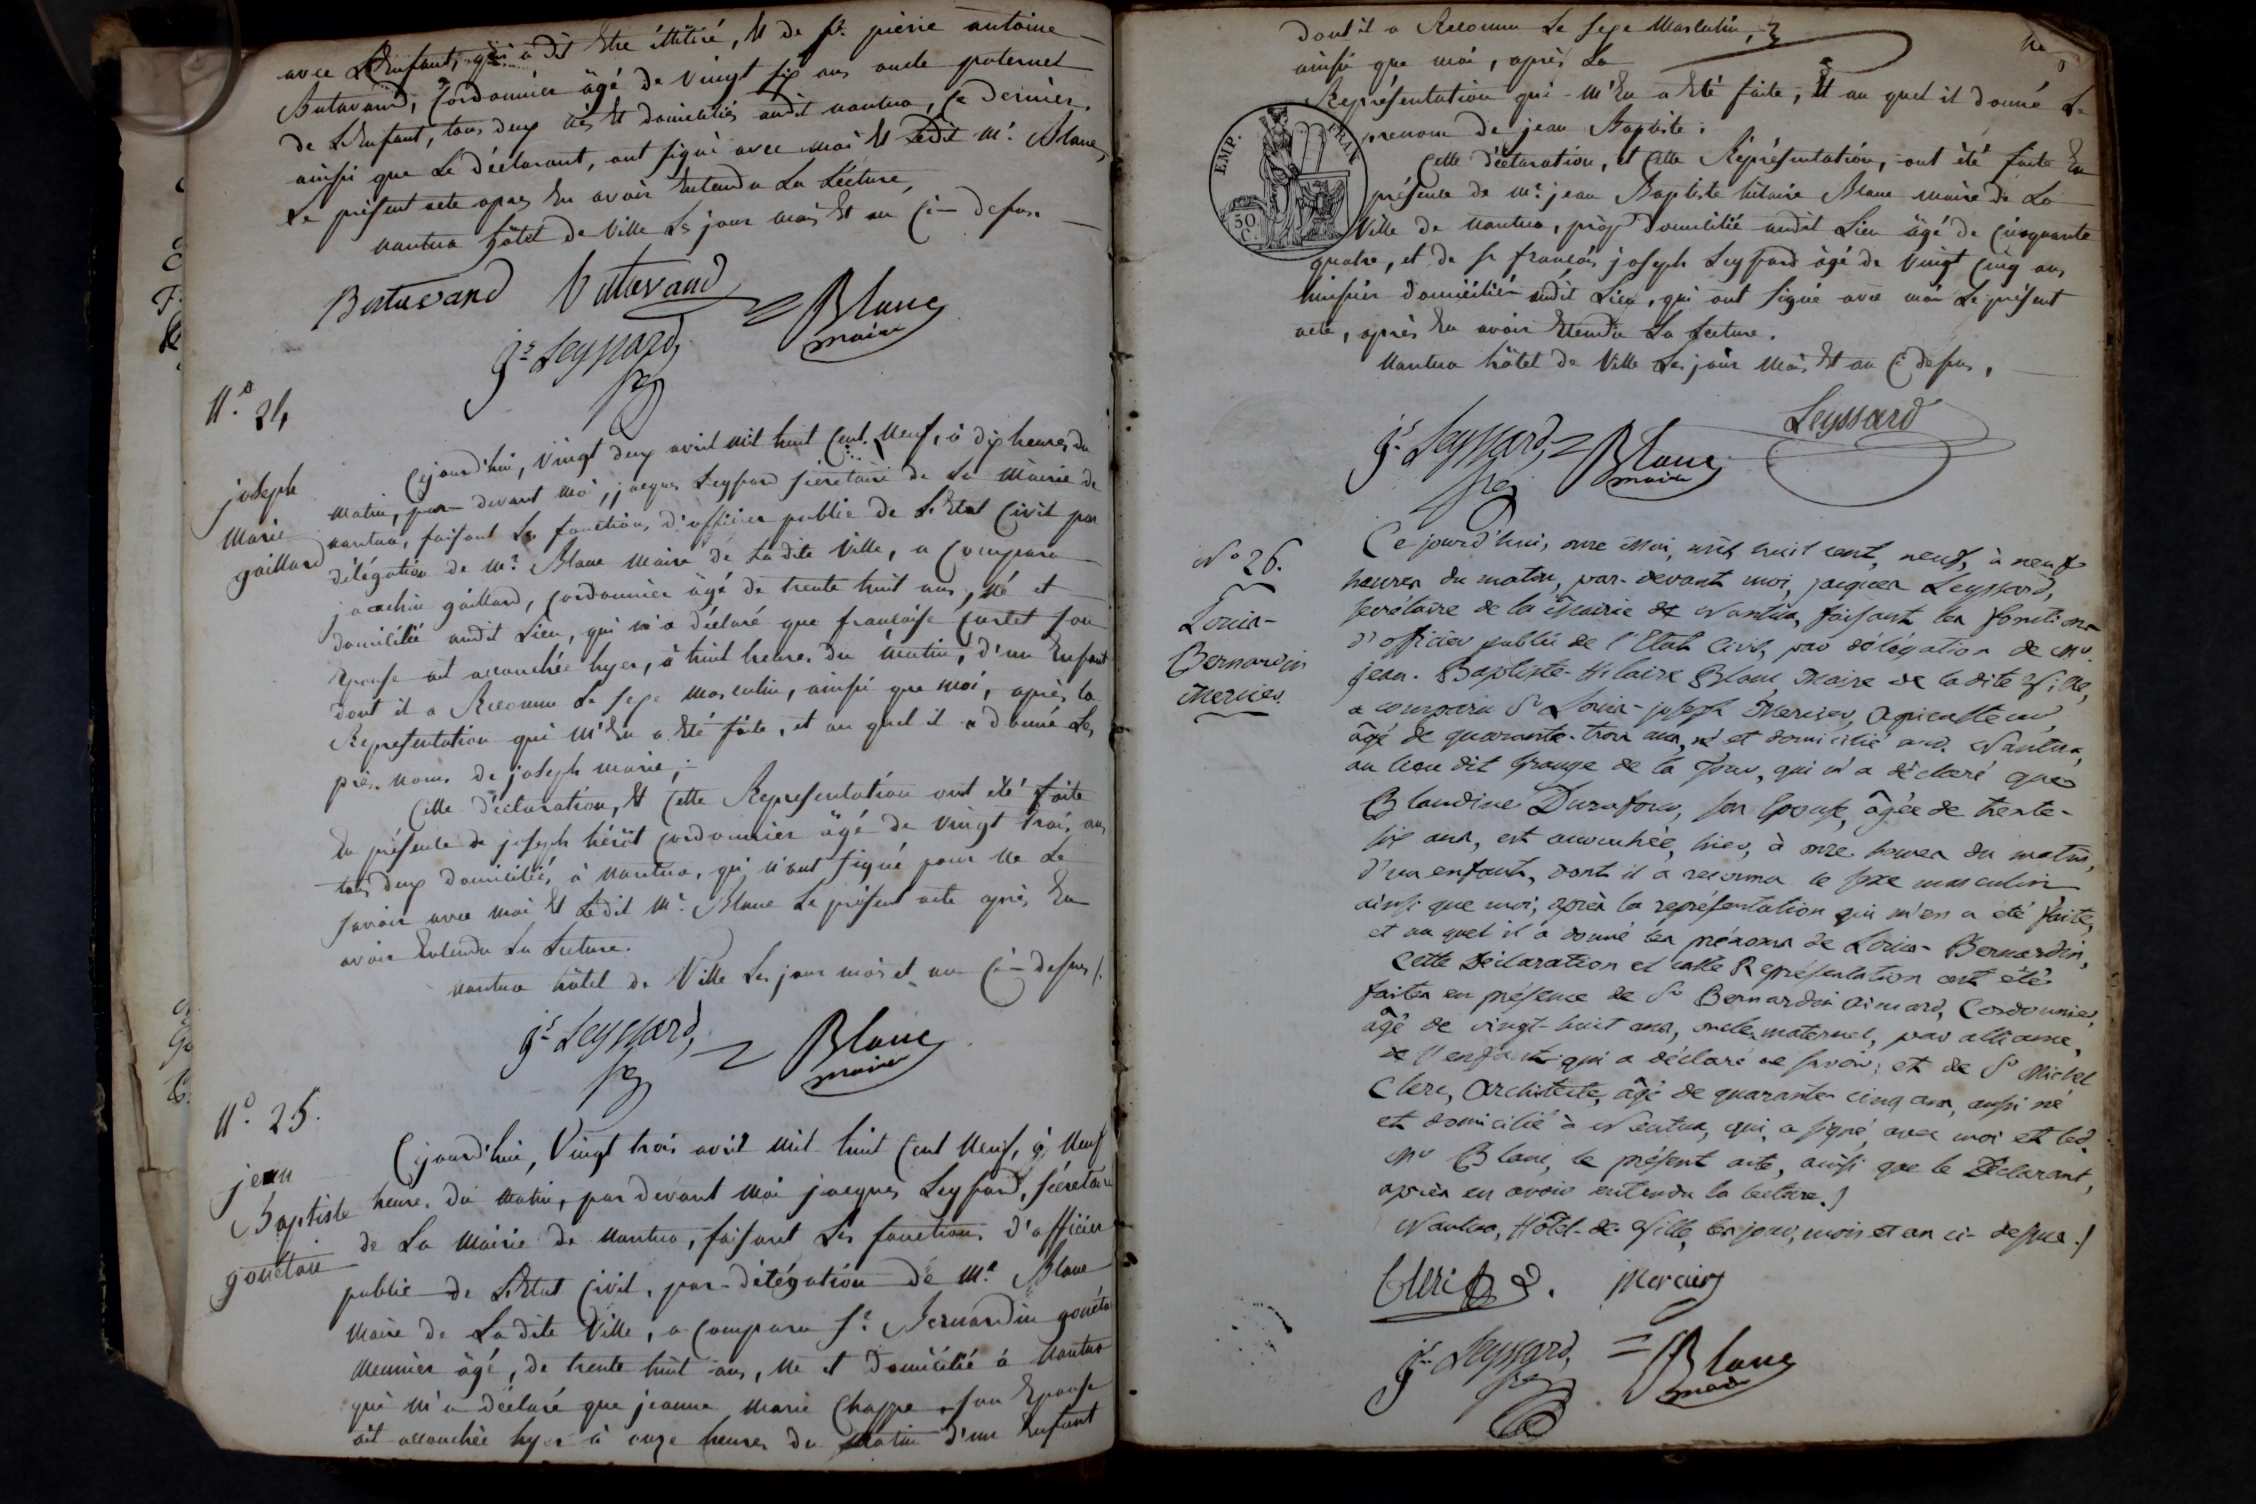 avec L'Enfant, qui a dit Etre illitiré, Et de Sr. pierre antoine
Butavand, Cordonnier âgé de vingt six ans oncle paternel
de L'Enfant, tous deux nés Et domiciliés audit nantua, Ce dernier,
ainsi que Le déclarant, ont signé avec moi Et Ledit Mr. Blanc,
Le présent acte apres En avoir Entendu La Lécture,
nantua hôtel de Ville Les jour mois Et an Ci-dessus
Butavand Butavand = Blanc
maire
js. Leyssard,
N.o 24
joseph
Marie
gaillard
Cejourd'hui, vingt deux avril mil huit Cent Neuf, à dix heures du
matin, par-devant moi, jacques Leyssard sécretaire de La Mairie de
nantua, faisant Les fonctions d'officier public de L'Etat Civil par
délégation de Mr. Blanc Maire de Ladite Ville, a Comparu
joachin gaillard, Cordonnier âgé de trente huit ans, Né et
domicilié audit Lieu, qui m'a déclaré que françoise Curtet son
Epouse est accouchée hyer, à huit heures du matin, d'un Enfant
dont il a Reconnu Le sexe masculin, ainsi que moi, après la
Représentation qui M'En a Eté faite, et au quel il a donné Les
prés-noms de joseph marie;
Cette déclaration, Et Cette Représentation ont été faite
En présence de joseph hérôt cordonnier âgé de vingt trois ans
tous deux domiciliés à nantua, qui n'ont signé pour Ne Le
savoir avec moi Et Ledit Mr. Blanc Le présent acte après En
avoir Entendu La Lecture.
nantua hôtel de Ville Les jour mois et an Ci-dessus /.
js. Leyssard, = Blanc
maire
N.o 25.
jean
Baptiste
gouëtan
Cejourd'hui, Vingt trois avril mil huit Cent Neuf, à Neuf
heures du matin, par devant moi jacques Leyssard, sécretaire
de La Mairie de nantua, faisant Les fonctions d'officier
public de L'Etat Civil, par-délégation de Mr. Blanc
Maire de Ladite Ville, a Comparu Sr. Bernardin gouëta
Meunier âgé, de trente huit ans, Né et domicilié à Nantua
qui M'a déclaré que jeanne Marie Chappe, son Epouse
est accouchée hyer à onze heures du Matin d'un Enfant
dont il a Reconnu Le sexe Masculin,
ainsi que moi, après La
Représentation qui M'En a Eté faite, Et au quel il donné Le
prenom de jean Baptiste.
EMP. FRAN
50 C.
Cette déclaration, et Cette Réprésentation, ont été faite En
présence de Mr. jean Baptiste hilaire Blanc maire de La
Ville de nantua, propre domicilié audit Lieu âgé de Cinquante
quatre, et de Sr françois joseph Leyssard âgé de Vingt Cinq ans
huissier domicilié audit Lieu, qui ont signé avec moi Le présent
acte, après En avoir Etendu La Lecture.
Nantua hôtel de Ville Les jour Mois Et an Ci dessus,
js. Leyssard, = Blanc
maire
Leyssard
No 26.
Louis-
Bernardin
Mercier
Ce jourd'hui, onze Mai, mil huit cent, neuf, à neuf
heures du matin, par-devant moi, jacques Leyssard,
secrétaire de la Mairie de Nantua, faisant les fonctions
d'officier public de l'Etat Civil, par délégation de Mr
jean-Baptiste-Hilaire Blanc Maire de ladite Ville,
a comparu Sr Louis-joseph Mercier, Agriculteur,
âgé de quarante-trois ans, né et domicilié aud. Nantua,
au lieu dit Grange de la Tour, qui m'a déclaré que
Blandine Durafour, son épouse, âgée de trente-
six ans, est accouchée, hier, à onze heures du matin,
d'un enfant, dont il a reconnu le sexe masculin
ainsi que moi, après la représentation qui m'en a été faite,
et au quel il a donné les prénoms de Louis-Bernardin,
Cette Déclaration et cette Représentation ont été
faites en présence de Sr Bernardin Aimard, Cordonnier,
âgé de vingt-huit ans, oncle maternel, par alliance,
de l'enfant qui a déclaré ne savoir, et de Sr Michel
Clerc, Architecte, âgé de quarante-cinq ans, aussi né
et domicilié à Nantua, qui a signé, avec moi et led.
Mr Blanc, le présent acte, ainsi que le Déclarant,
après en avoir entendu la lecture./
Nantua, Hôtel-de-Ville, les jour, mois et an ci-dessus./
Clerc Mercier
js. Leyssard, = Blanc
maire